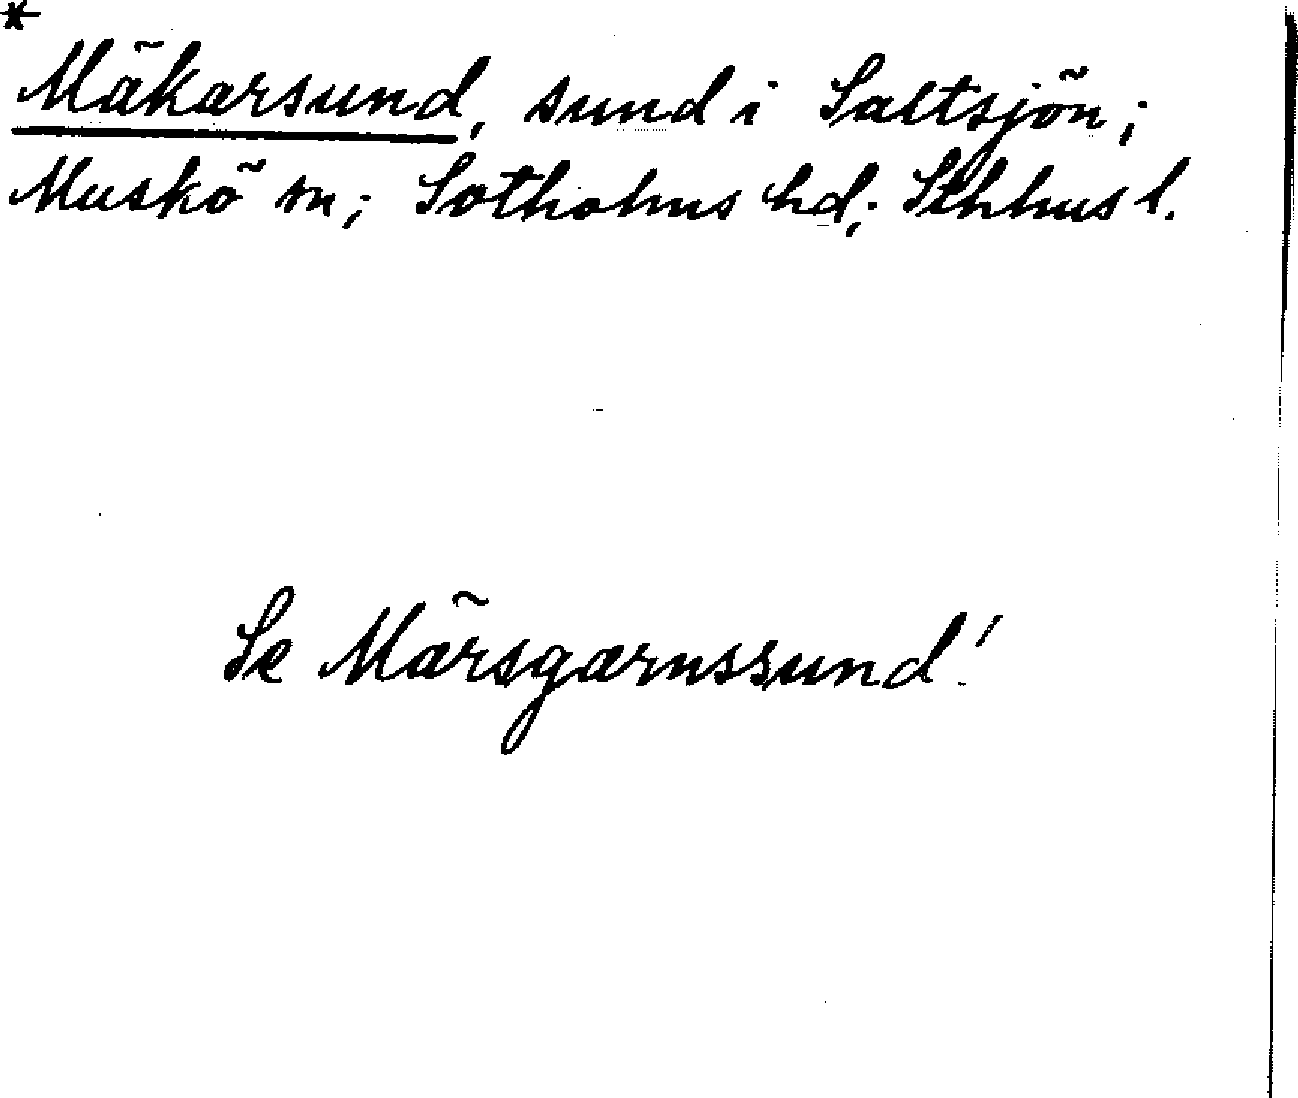 *
Mäkarsund, sund i Saltsjön;
Muskö sn; Sotholms hd; Sthlms l.
Se Märsgarnssund!